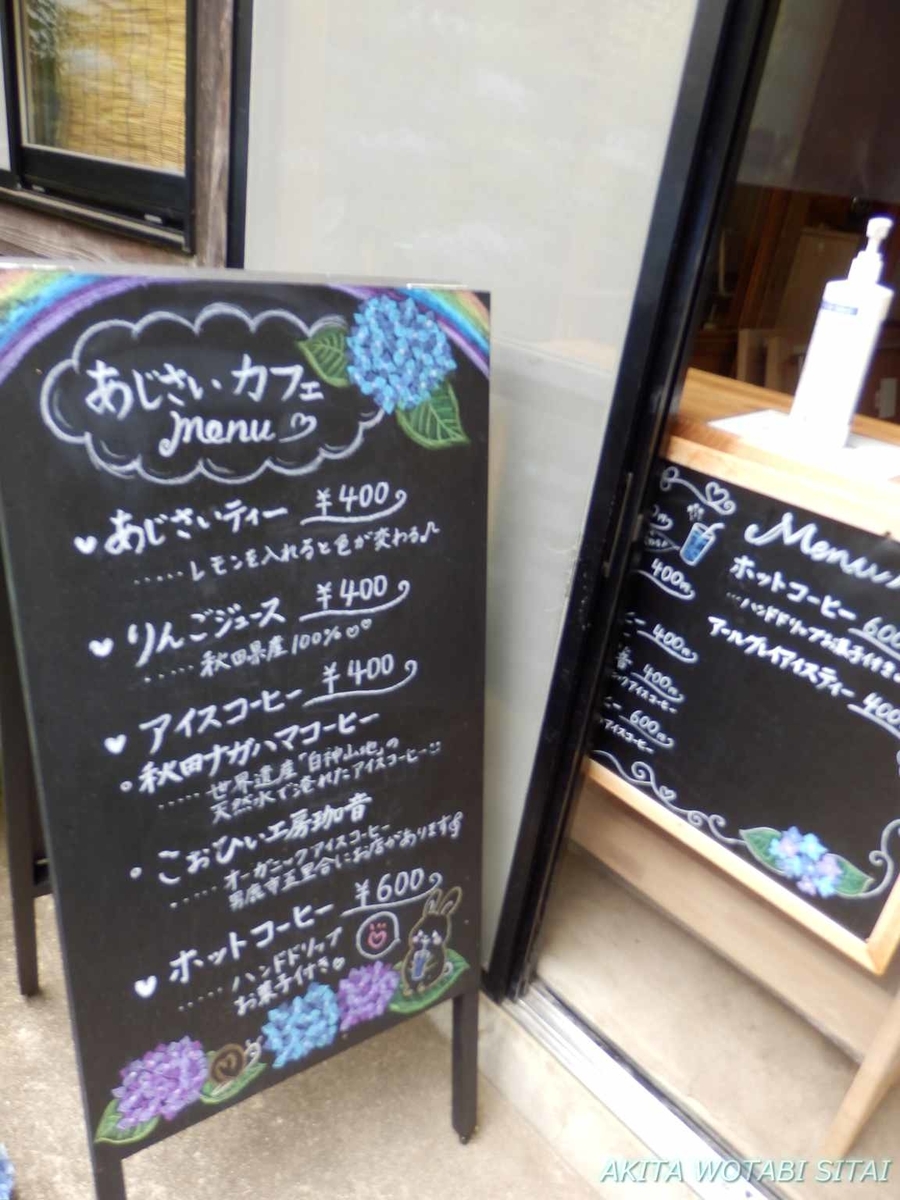 あじさいカフェ
menu
あじさいティー ¥400
.....レモンを入れると色が変わる♪
りんごジュース ¥400
.....秋田県産100%♡♡
アイスコーヒー ¥400
秋田ナガハマコーヒー
.....世界遺産「白神山地」の
天然水で淹れたアイスコーヒー
こおひい工房珈音
.....オーガニックアイスコーヒー
男鹿市五里合にお店があります
ホットコーヒー ¥600
.....ハンドドリップ
お菓子付き♡
Menu
ホットコーヒー 600
...ハンドドリップお菓子付き
アールグレイアイスティー 400
400円
400円
400円
アイスコーヒー
600円
アイスコーヒー
AKITA WOTABI SITAI